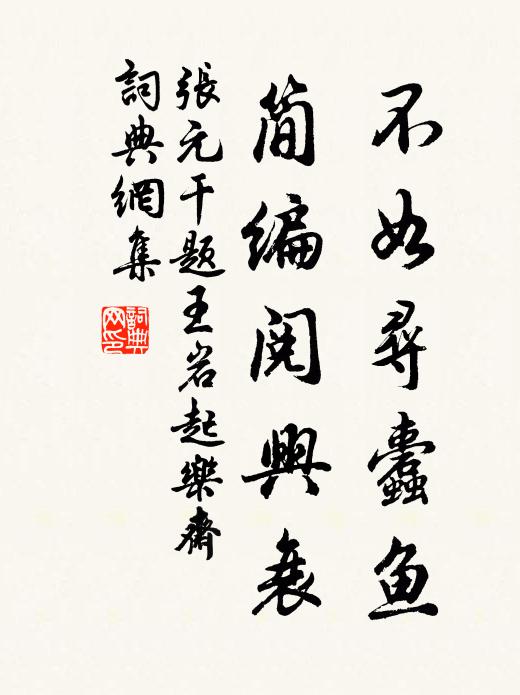 不如尋蠹魚
簡編閱興衰
張元干题王岩起樂齋
詞典網集
詞典
网印